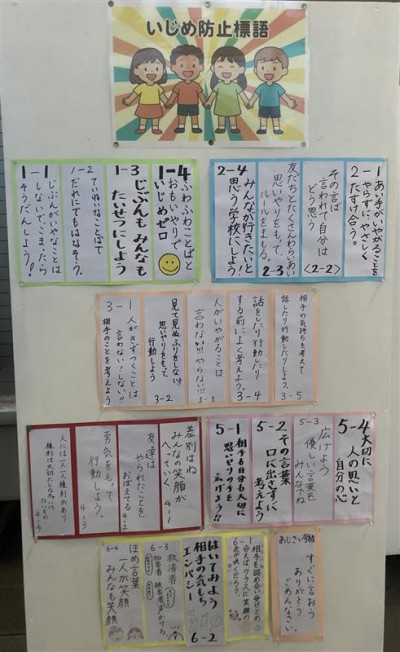 いじめ防止標語
1-4
ふわふわことばと
おもいやりで
いじめゼロ
1-3
じぶんもみんなも
たいせつにしよう
1-2
ていねいなことばで
だれにでもはなそう。
1-1
じぶんがいやなことは
しないで、こまったら
そうだんしよう!!
1 あい手がいやがることを
やらずに、やさしく
2 たすけ合う。
その言ば
言われて自分は
どう思う
<2-2>
友だちとたくさんわらいあい
思いやりをもって
ルールをまもる。
2-3
2-4
みんなが行きたいと
思う学校にしよう
相手の気持ちを考えて
話したり行動したりしよう。
3-5
話をしたり行動したり
する前によく考えよう。
3-4
人がいやがることは
言わない!!!やらない!!!
3-3
見て見ぬふりをしない!!
思いやりをもって
行動しよう
3-2
3-1
人がきずつくことは
言わない!しない!!
相手のことを考えよう
差別はね
みんなの笑顔が
へっていく
4-1
友達は
やられたことを
おぼえてる
4-2
勇気をもって
行動しよう。
4-3
人には一人一人権利があり
4-4
5-4
大切に
人の思いと
自分の心
5-3
広げよう
優しい言葉を
みんなでね
5-2
その言葉
口に出さずに
考えよう
5-1
相手も自分も大切に
思いやりの子を
広げよう!!
あじさい学級
すぐに言おう
ありがとう
ごめんなさい。
相手を認め合い受けとめ
はいてみよう
相手の気もち
エンパシー
6-2
6-3
救済者
6-4
ほめ言葉
一人が笑顔
みんなも笑顔